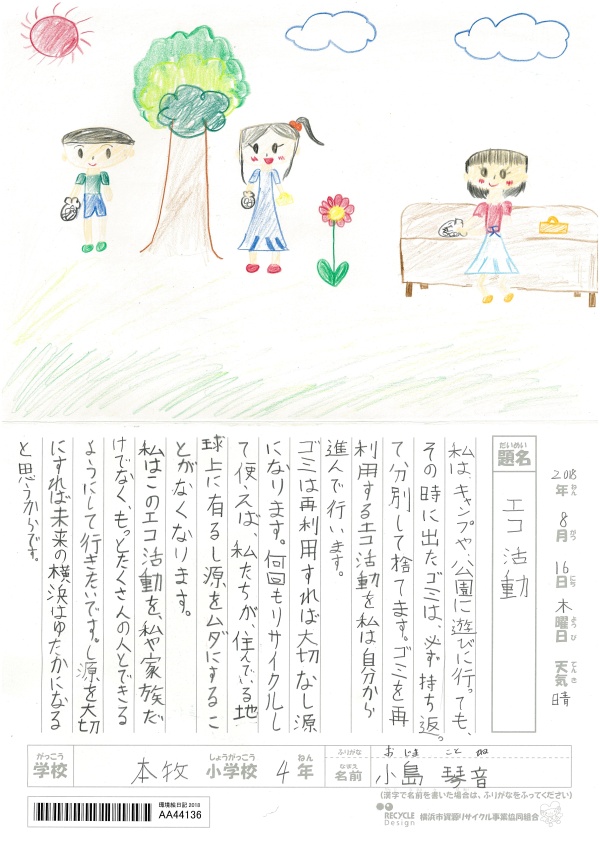 2018年 8月 16日 木曜日 天気 晴
ねん がつ にち ようび てんき
だいめい
題名
エコ活動
私は、キャンプや、公園に遊びに行っても、
その時に出たゴミは、必ず持ち返っ
て、分別して捨てます。ゴミを再
利用するエコ活動を私は自分から
進んで行います。
ゴミは再利用すれば大切なし源
になります。何回もリサイクルし
て使えば、私たちが、住んでいる地
球上に有るし源をムダにするこ
とがなくなります。
私はこのエコ活動を、私や家族だ
けでなく、もっとたくさんの人とできる
ようにして行きたいです。し源を大切
にすれば未来の横浜はゆたかになる
と思うからです。
がっこう
学校
本牧 小学校 4年
しょうがっこう ねん
ふりがな おじま ことね
なまえ
名前 小島 琴音
(漢字で名前を書いた場合は、ふりがなをふってください)
環境絵日記 2018
AA44136
RECYCLE Design 横浜市資源リサイクル事業協同組合